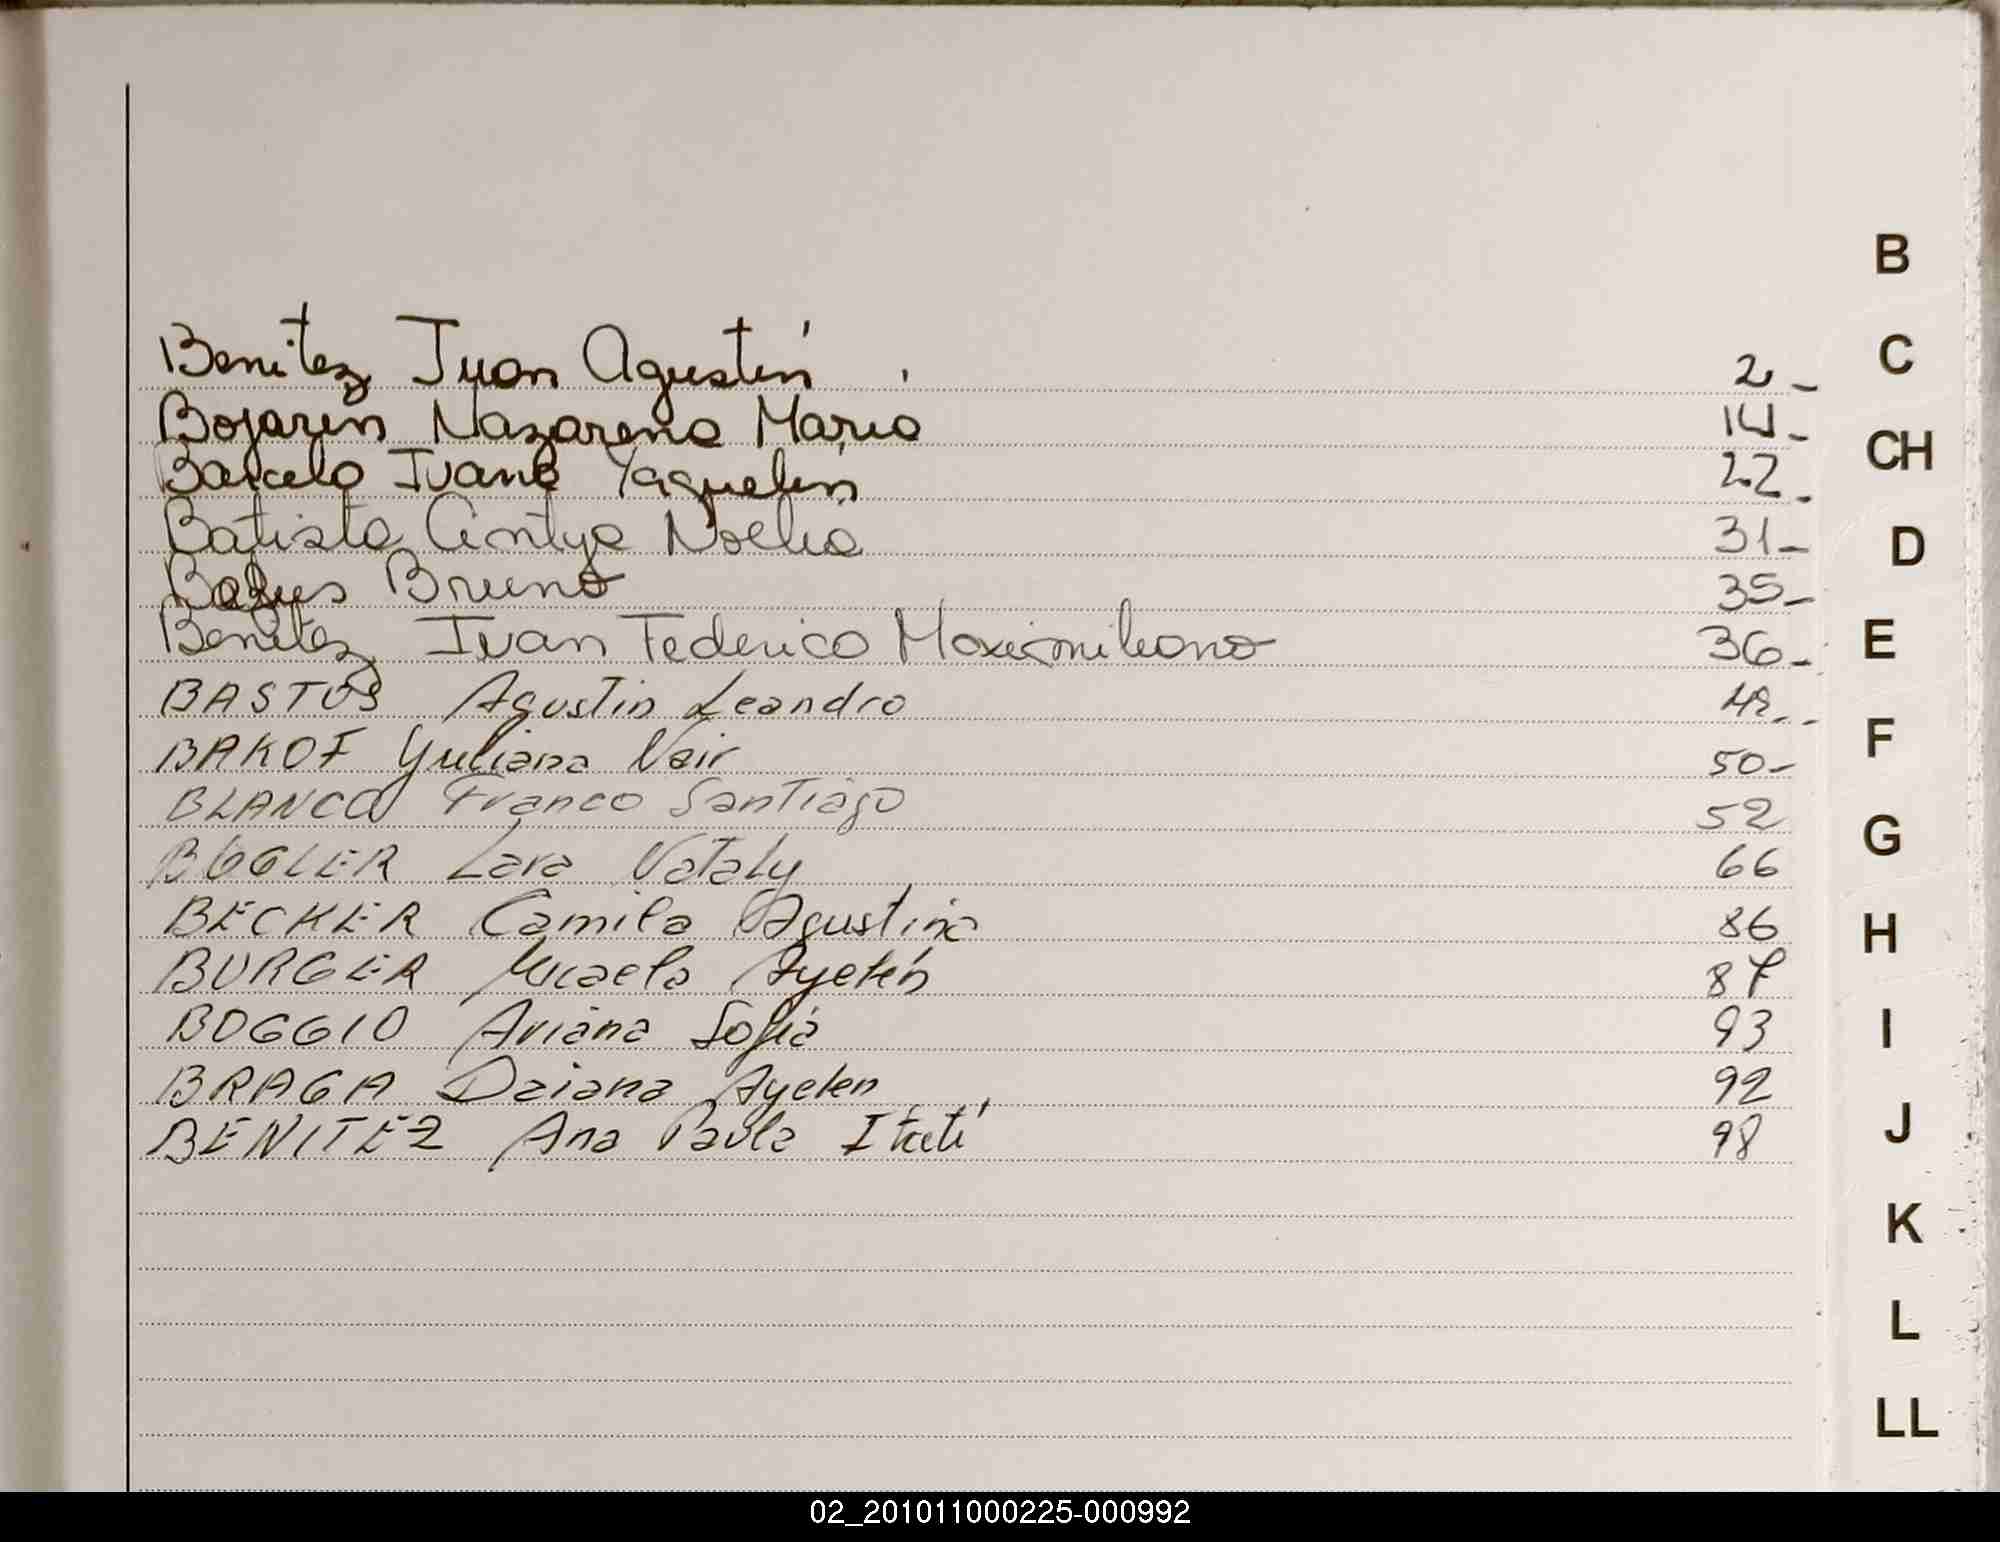 Benitez Juan Agustín 2-
Bojarin Nazareno Mario 14-
Barcelo Ivana Yaquelin 22-
Batista Cintya Noelia 31-
Bruno 35-
Benitez Ivan Federico Maximiliano 36-
BASTOS Agustin Leandro
BAKOF Yuliana Nair 50-
BLANCO Franco Santiago 52
Lara Nataly 66
BECKER Camila Agustina 86
BURGER Micaela Ayelén 87
BOGGIO Ariana Sofia 93
BRAGA Daiana Ayelen 92
BENITEZ Ana Paula Itatí 98
B
C
CH
D
E
F
G
H
I
J
K
L
LL
02_201011000225-000992